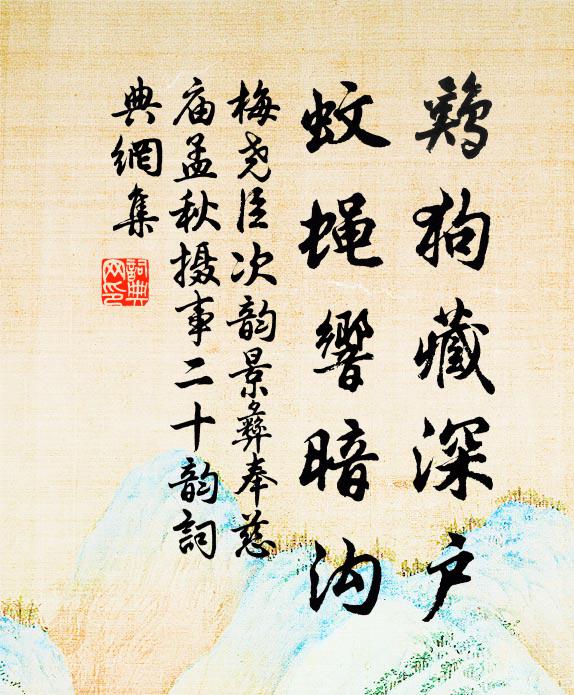 鷄狗藏深户
蚊蝇響暗沟
梅尧臣次韵景彝奉慈
庙孟秋摄事二十韵詞
典網集
詞典
网印